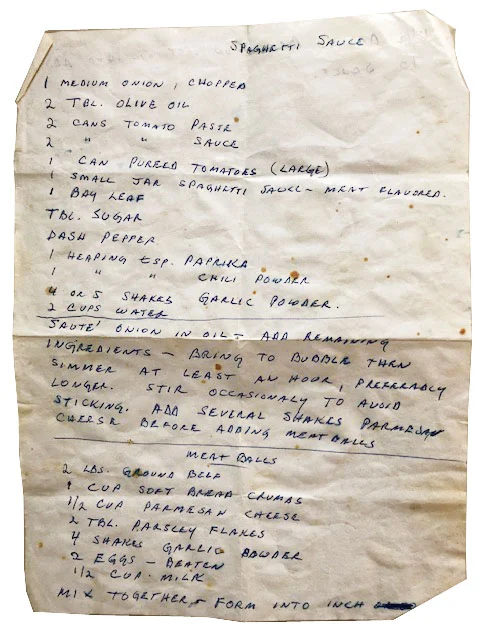 SPAGHETTI SAUCE
1 MEDIUM ONION, CHOPPED
2 TBL. OLIVE OIL
2 CANS TOMATO PASTE
2 " " SAUCE
1 CAN PUREED TOMATOES (LARGE)
1 SMALL JAR SPAGHETTI SAUCE - MEAT FLAVORED.
1 BAY LEAF
TBL. SUGAR
DASH PEPPER
1 HEAPING tsp. PAPRIKA
1 " " CHILI POWDER
4 OR 5 SHAKES GARLIC POWDER.
2 CUPS WATER
SAUTE' ONION IN OIL - ADD REMAINING
INGREDIENTS - BRING TO BUBBLE THEN
SIMMER AT LEAST AN HOUR, PREFERABLY
LONGER. STIR OCCASIONALY TO AVOID
STICKING. ADD SEVERAL SHAKES PARMESAN
CHEESE BEFORE ADDING MEATBALLS
MEAT BALLS
2 LBS. GROUND BEEF
1 CUP SOFT BREAD CRUMBS
1/2 CUP PARMESAN CHEESE
2 TBL. PARSLEY FLAKES
4 SHAKES GARLIC POWDER
2 EGGS - BEATEN
1/2 CUP MILK
MIX TOGETHER - FORM INTO INCH